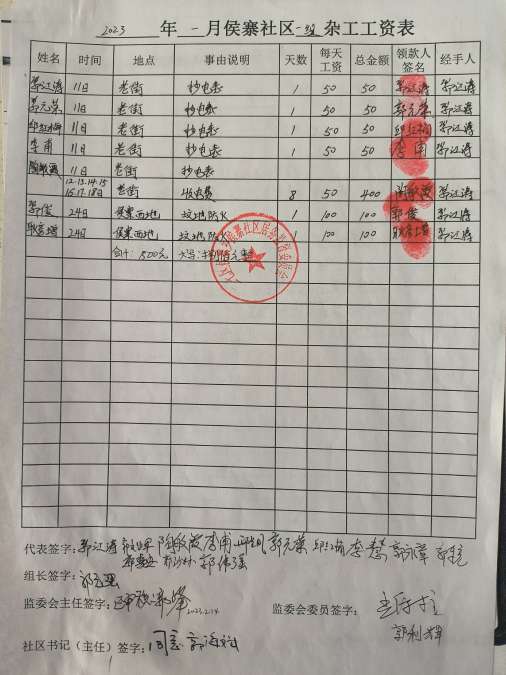 2023 年 一 月侯寨社区一组杂工工资表
姓名 时间 地点 事由说明 天数 每天工资 总金额 领款人签名 经手人
郭江涛 11日 老街 抄电表 1 50 50 郭江涛 郭江涛
郭元荣 11日 老街 抄电表 1 50 50 郭元荣 郭江涛
邱红梅 11日 老街 抄电表 1 50 50 邱红梅 郭江涛
李甫 11日 老街 抄电表 1 50 50 李甫 郭江涛
陶敏霞 11日 老街 抄电表
12.13.14.15
16.17.18日 老街 收电费 8 50 400 陶敏霞 郭江涛
郭俊 24日 侯寨西地 坟地防火 1 100 100 郭俊 郭江涛
24日 侯寨西地 坟地防火 1 100 100 郭江涛
合计: 800元 大写:
侯寨社区居务监督委员会
代表签字: 郭江涛 陶敏霞 李甫 郭元荣 邱红梅 李慧
郭伟强
组长签字:
监委会主任签字: 2023.2.14 监委会委员签字:
郭利辉
社区书记(主任)签字: 同意 郭海斌